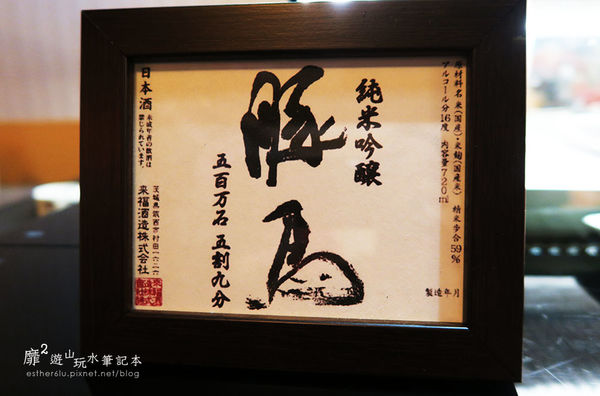 原材料名 米(国産)・米麹(国産米) 精米歩合59%
アルコール分16度 内容量720ml
製造年月
純米吟醸
豚馬
五百万石 五割九分
日本酒
未成年者の飲酒は
禁じられています。
茨城県筑西市村田一六二六
来福酒造株式会社
靡²遊山玩水筆記本
esther61u.pixnet.net/blog